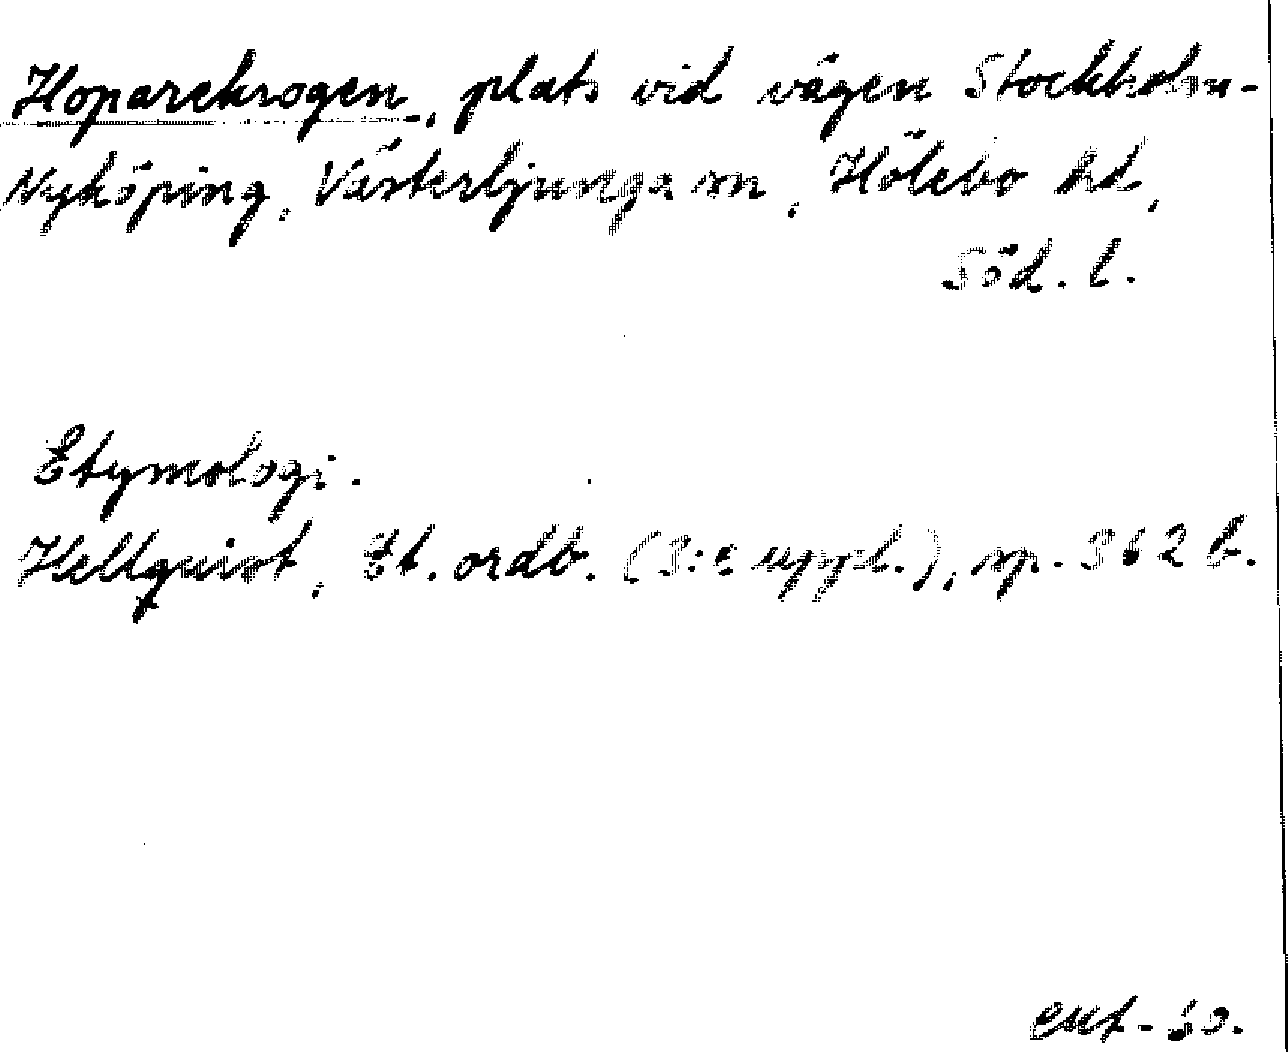 Hoparekrogen, plats vid vägen Stockholm-
Nyköping, Västerljungs sn, Hölebo hd,
Söd. l.
Etymologi.
Hellquist, Et. ordb. (3:e uppl.), sp. 362 b.